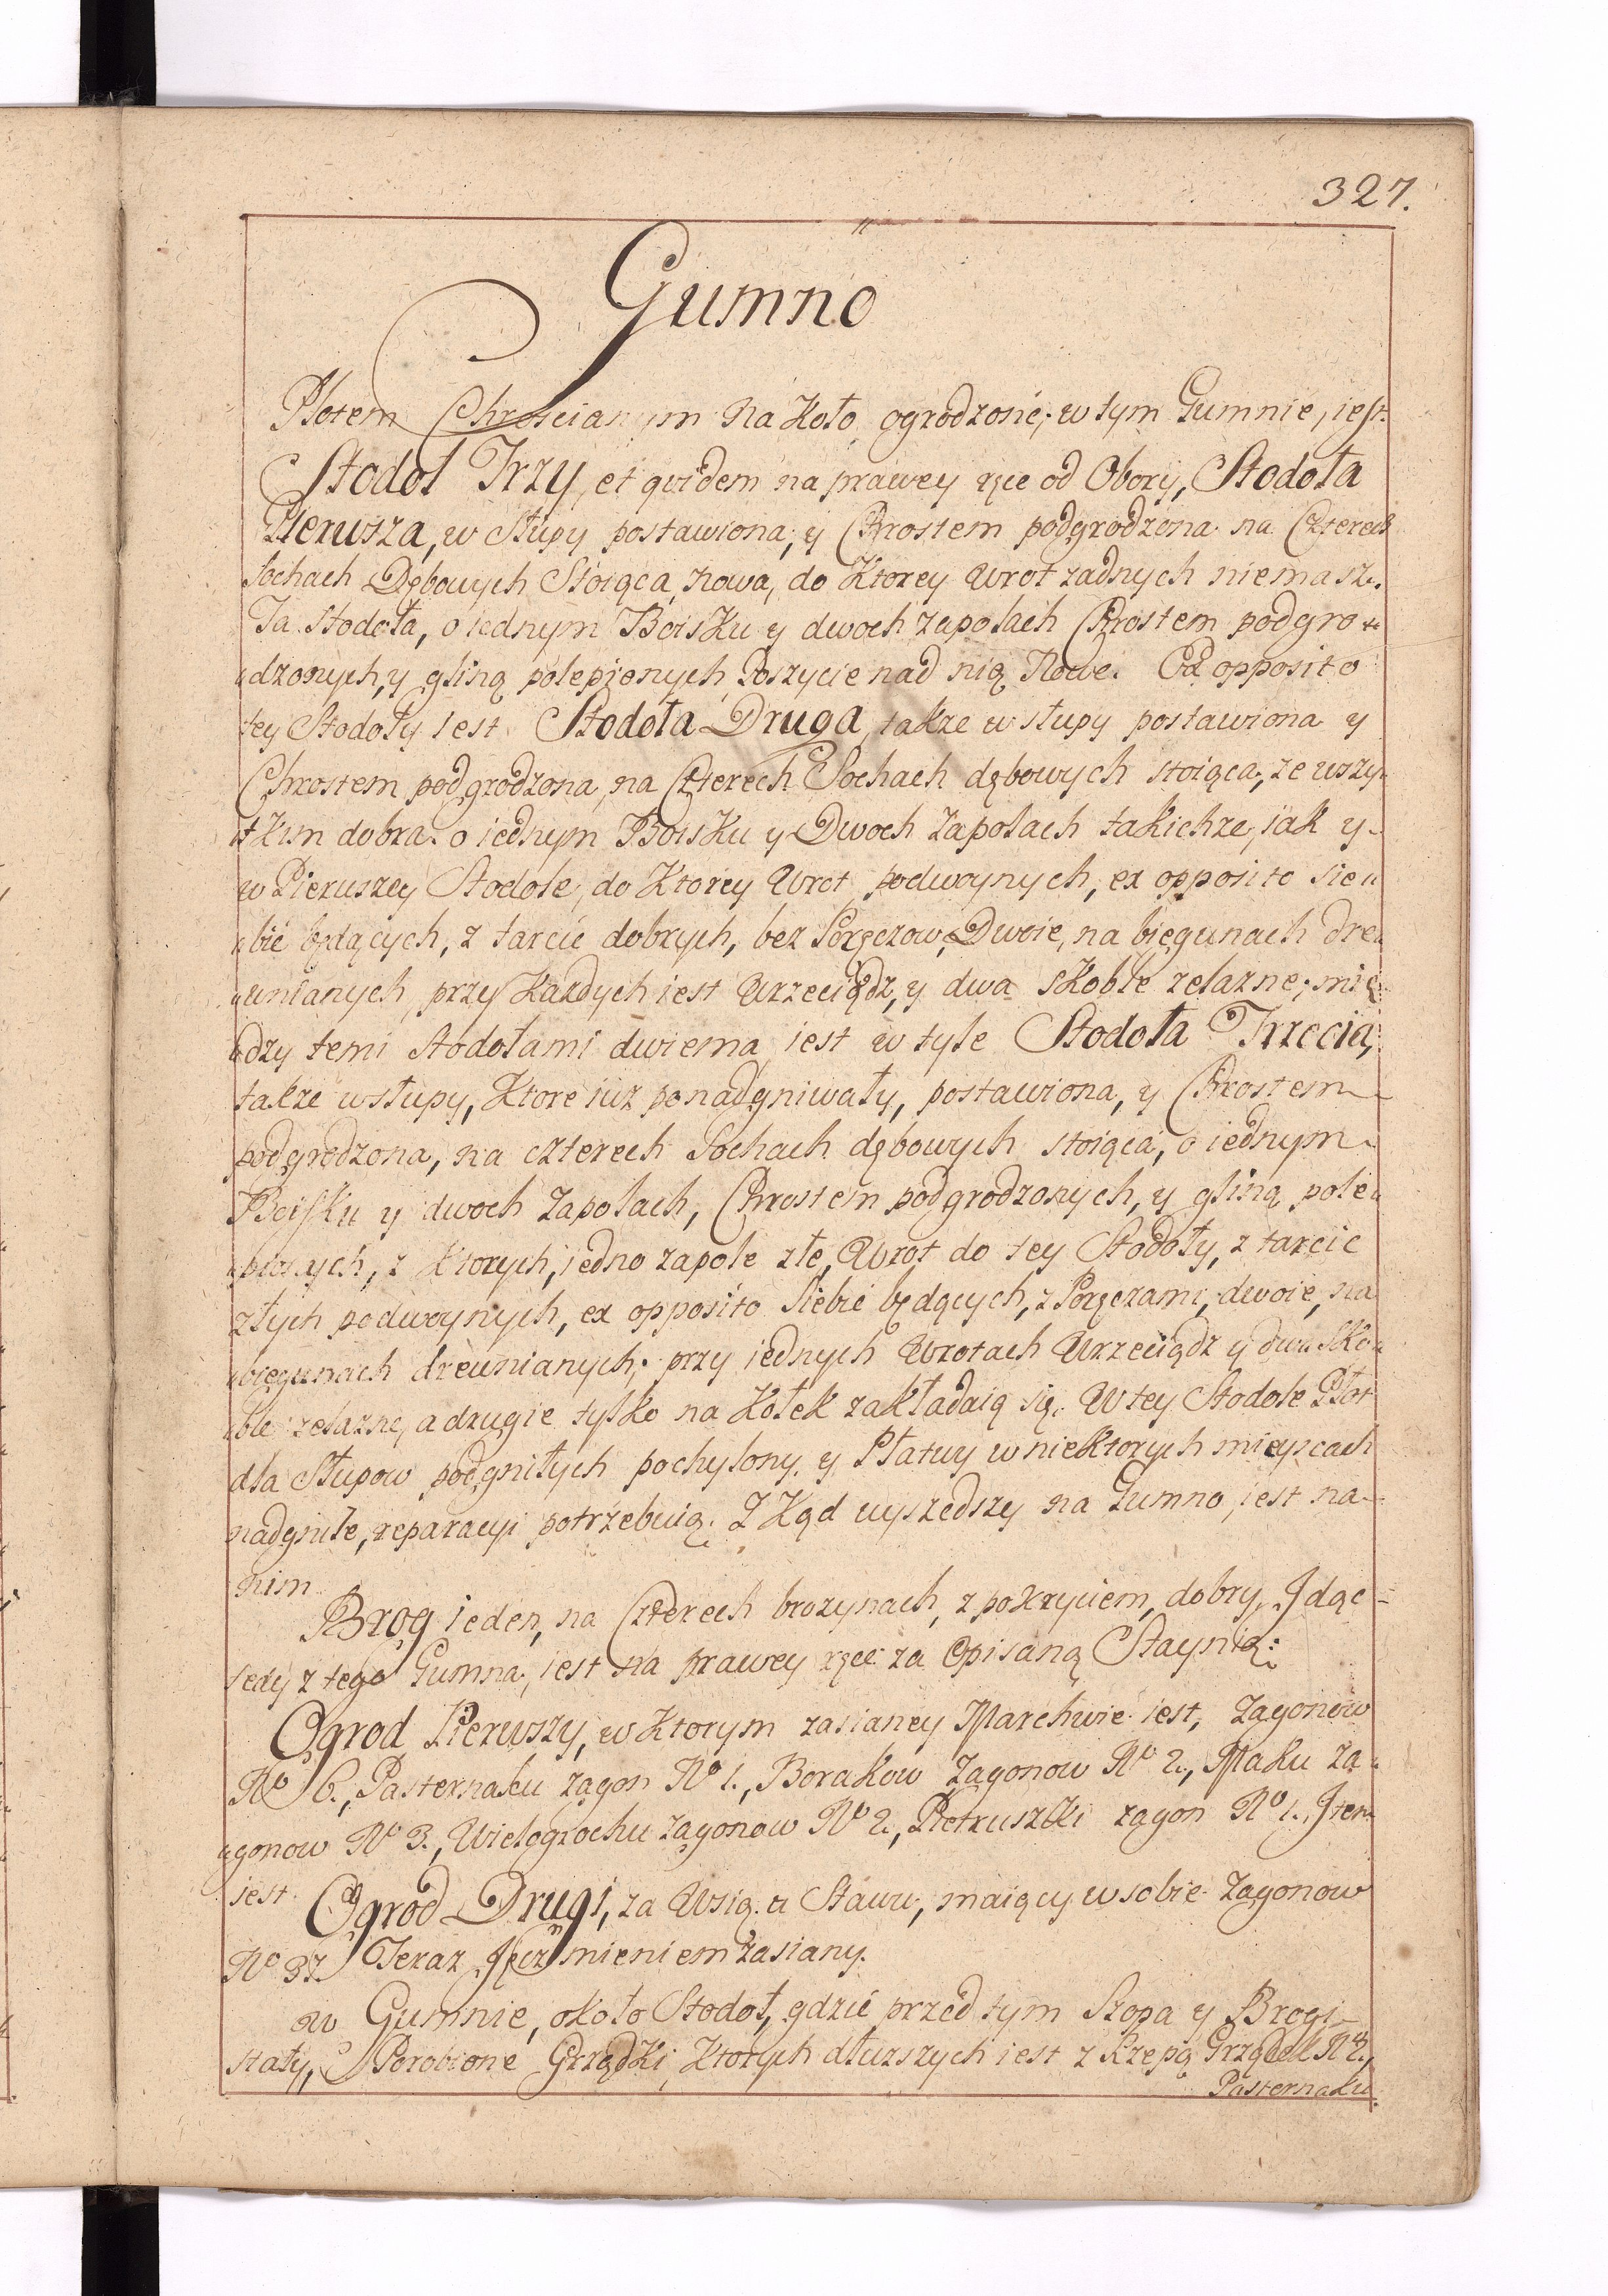 327.
Gumno
Płotem Chrościanym na Koło ogrodzone; w tym Gumnie, iest.
Stodoł Trzy, et qvidem na prawey ręce od Obory, Stodoła
Pierwsza, w Słupy postawiona, y Chrostem podgrodzona na Czterech
Sochach Dębowych Stoiąca, nowa, do Ktorey Wrot żadnych niemasz.
Ta Stodoła, o iednym Boisku y dwoch zapolach Chrostem podgro„
„dzonych, y gliną polepionych, Poszycie nad nią Nowe. Ex opposito
tey Stodoły iest Stodoła Druga, także w słupy postawiona y
Chrostem podgrodzona, na Czterech Sochach dębowych stoiąca, ze wszy„
stkim dobra. o iednym Boisku y Dwoch Zapolach takichże, iak y
w Pierwszey Stodole, do Ktorey Wrot podwoynych, ex opposito sie„
„bie będących, z tarcic dobrych, bez Poręczow, Dwoie, na biegunach dre„
„wnianych, przy Każdych iest Wrzeciądz, y dwa Skoble żelazne; mię„
„dzy temi Stodołami dwiema iest w tyle Stodoła Trzecia,
także w słupy, Ktore iuż ponadgniwały, postawiona, y Chrostem
podgrodzona, na czterech Sochach dębowych stoiąca, o iednym
Boisku y dwoch Zapolach, Chrostem podgrodzonych, y gliną pole„
„pionych, z Ktorych, iedno zapole złe, Wrot do tey Stodoły, z tarcic
złych podwoynych, ex opposito Siebie będących, z Poręczami, dwoie, na
„biegunach drewnianych; przy iednych Wrotach Wrzeciądz y dwa Sko„
„ble żelazne, a drugie tylko na Kołek zakładaią się. W tey Stodole Płot
dla Słupow podgniłych pochylony, y Płatwy w niektorych mieyscach
nadgniłe, reparacyi potrzebuią. Z Kąd wyszedszy na Gumno, iest na
nim
Brog ieden, na Czterech brożynach, z pokryciem, dobry, Idąc
tedy z tego Gumna, iest na prawey ręce za Opisaną Staynią:
Ogrod Pierwszy, w Ktorym zasianey Marchwie iest, Zagonow
No 6., Pasternaku zagon No 1., Borakow Zagonow No 2., Maku Za„
„gonow No 3., Wielogrochu Zagonow No 2., Pietruszki zagon No 1. Item
iest
Ogrod Drugi, za Wsią u Stawu, maiący w sobie Zagonow
No 37. Teraz Jęczmieniem zasiany.
w Gumnie, około Stodoł, gdzie przed tym Szopa y Brogi
stały, Porobione Grządki, Ktorych dłuższych iest z Rzepą Grządek No 2.,
Pasternaku